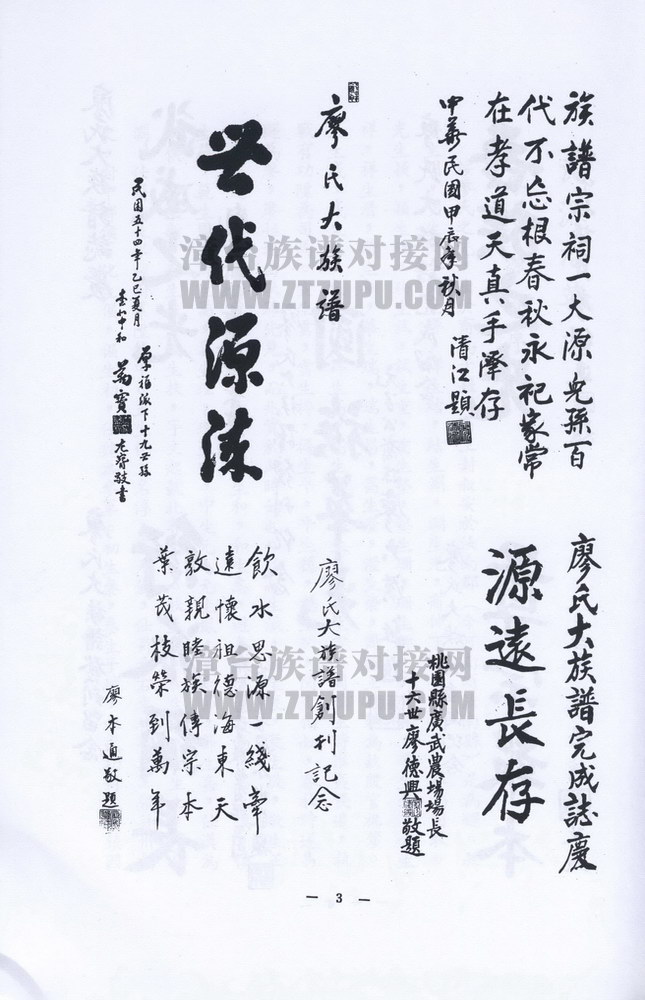 族譜宗祠一大源兒孫百
代不忘根春秋永祀家常
在孝道天真手澤存
中華民國甲辰年秋月
清江題
廖氏大族譜
世代源流
民國五十四年乙巳夏月
厚福派下十九世孫
敬書
廖氏大族譜完成誌慶
源遠長存
桃園縣廣武農場場長
十六世廖德興敬題
廖氏大族譜創刊記念
飲水思源一綫牽
遠懷祖德海東天
敦親睦族傳宗本
葉茂枝榮到萬年
廖本通敬題
漳台族谱对接网
WWW.ZTZUPU.COM
漳台族谱对接网
WWW.ZTZUPU.COM
— 3 —